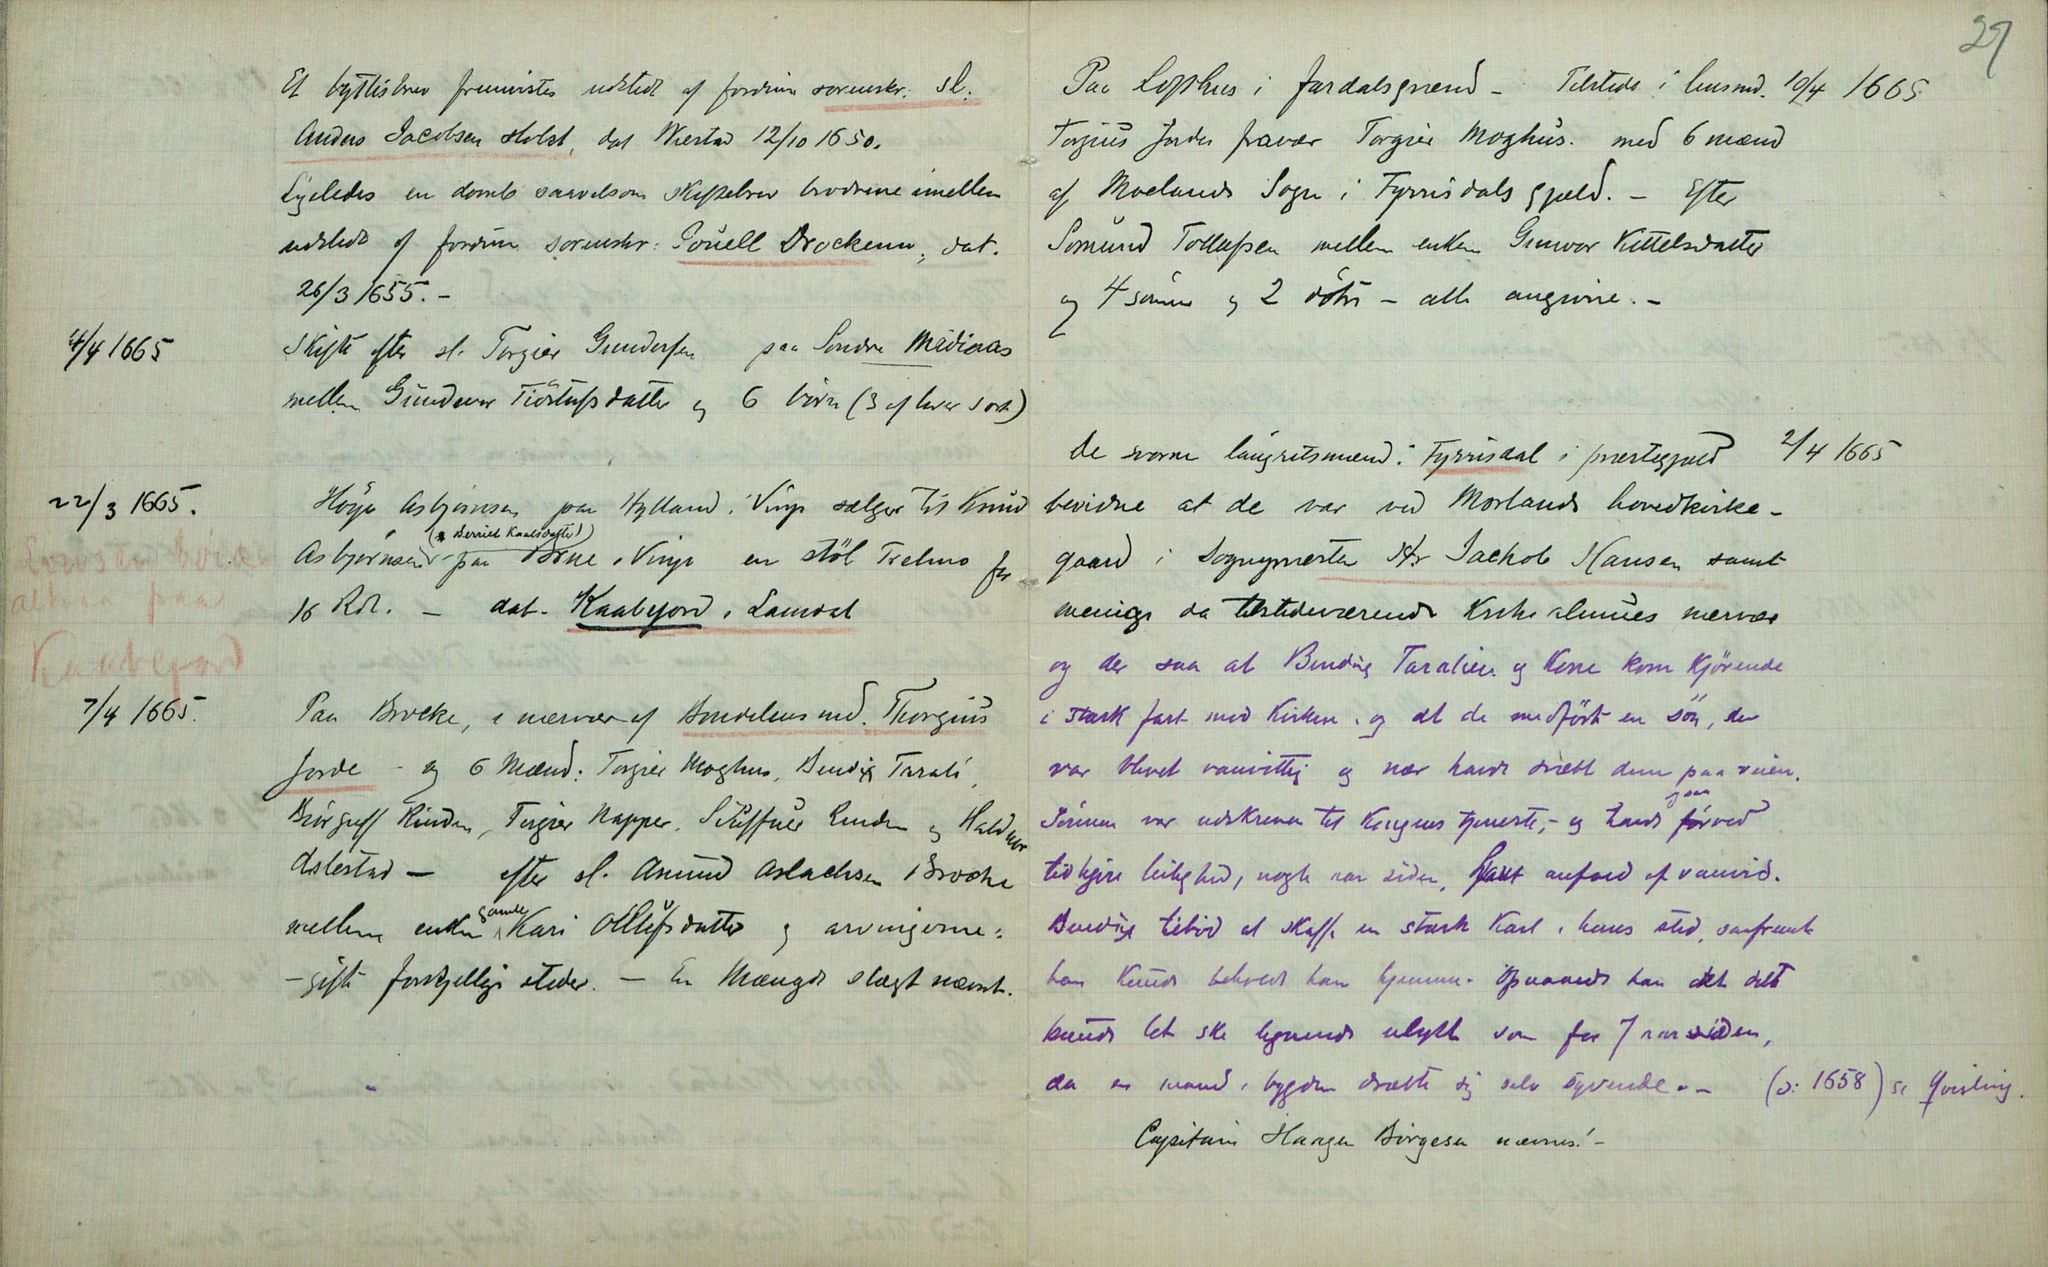 Et byttisbrev fremvistes udstedt af fordum sorenskr. sl.
Anders Jacobsen Holst, dat 12/10 1650.
Ligeledes en domb saavelsom Skiftebrev brødrene imellem
udstedt af fordum sorenskr: Pouell Drockenn, dat.
26/3 1655. -
4/4 1665
Skifte efter sl. Torgier Gundersen paa Søndre
mellem Gundvor Tiöstufsdatter og 6 börn (3 af hver sort)
22/3 1665.
Asbjörnsen paa Hylland i Vinje sælger til Knud
(& Berriell Kaalsdatter)
Asbjørnsen paa Börne i Vinje en stöl Trelmo for
16 Rdl. - dat. Kaabefjord i Lamdal
altsaa paa
Kaabefjord
7/4 1665.
Paa Brocke, i nærvær af Bondelensmd. Thorgius
Jorde - og 6 Mænd: Torgier Moghus, Bendix Tarali,
Rinden, Torgier Napper, Linden og Haldvor
Aslestad - efter sl. Amund Aslachsen Brocke
mellem enken gamle Kari Ollufsdatter og arvingerne:
- gifte forskjellige steder. - En Mængde slægt nævnt.
27
Paa Lofthus i Jardalsgrænd - Tilstede i lensmd. 10/4 1665
Torgius Jordes fravær Torgier Moghus. med 6 mænd
af Moelands Sogn i Fyrrisdals gjæld. - Efter
Tollefsen mellem enken Gunvor Kittelsdatter
og 4 sönner og 2 dötre - alle angivne. -
De svorne laugretsmænd i Fyrrisdal i prestegjæld 2/4 1665
bevidne at de var ved Morlands hovedkirke-
gaard i Sognepresten Hr Jackob Hansen samt
menige da tilstedeværende Kirke almues nærvær
og der saa at Bendix Taralien og Kone kom kjørende
i stærk fart mod Kirken, og at de medførte en sön, der
var blevet vanvittig og nær havde dræbt dem paa veien.
Sönnen var udskreven til Kongens tjeneste, - og havde ogsaa förved
leilighed, nogle aar siden, havt anfald af vanvid.
Bendix tilbød at skaffe en stærk Karl i hans sted, saafremt
han kunde beholde han hjemme. han at det
kunde let ske lignende ulykke som for 7 aar siden,
da en mand i bygden dræbte sig selv syvende. - (ɔ: 1658) se Qvisling.
Capitain Haagen Börgesen nævnes! -